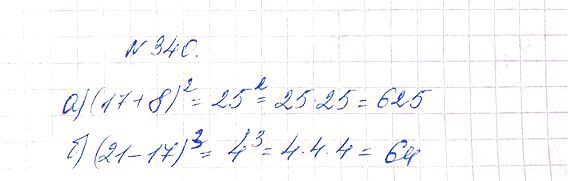 N 340.
а) (17+8)² = 25² = 25·25 = 625
б) (21-17)³ = 4³ = 4·4·4 = 64